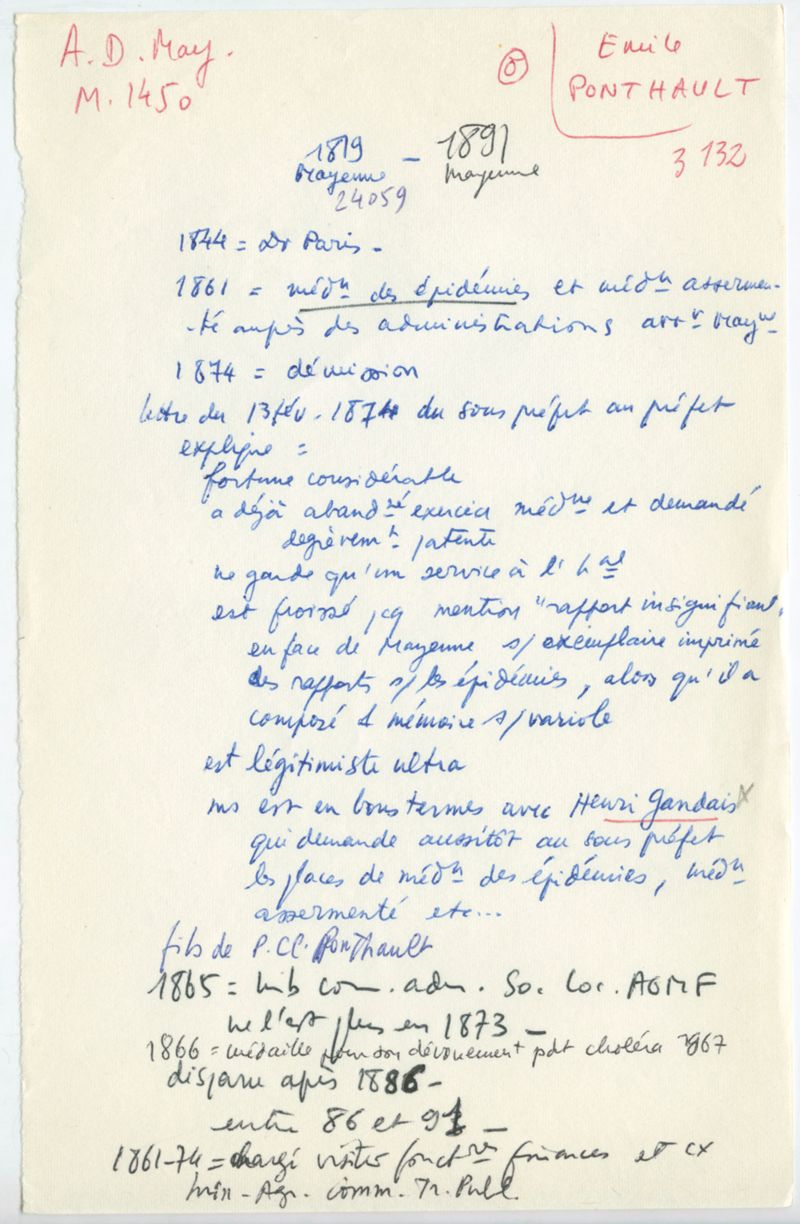 A. D. May.
M. 1450
Emile
PONTHAULT
3 132
1819 - 1891
Mayenne Mayenne
24059
1844 = Dr Paris -
1861 = médn des épidémies et médn assermen-
-té auprès des administrations arrt Mayne
1874 = démission
lettre du 13 fév. 1874 du sous préfet au préfet
explique =
fortune considérable
a déjà abandné exercice médne et demandé
degrèvemt patente
ne garde qu'un service à l'hal
est froissé pcq mention "rapport insignifiant"
en face de Mayenne s/ exemplaire imprimé
des rapports s/ les épidémies, alors qu'il a
composé 1 mémoire s/ variole
est légitimiste ultra
ms est en bons termes avec Henri Gandais x
qui demande aussitôt au sous préfet
les places de médn des épidémies, médn
assermenté etc...
fils de P. Cl. Ponthault
1865 = mb com. adm. So. loc. AGMF
ne l'est plus en 1873 -
1866 = médaille pour son dévouement pdt choléra 1967
disparu après 1886 -
entre 86 et 91 -
1861-74 = chargé visiter fonctres finances et cx
min - Agr. comm. Tr. Publ.